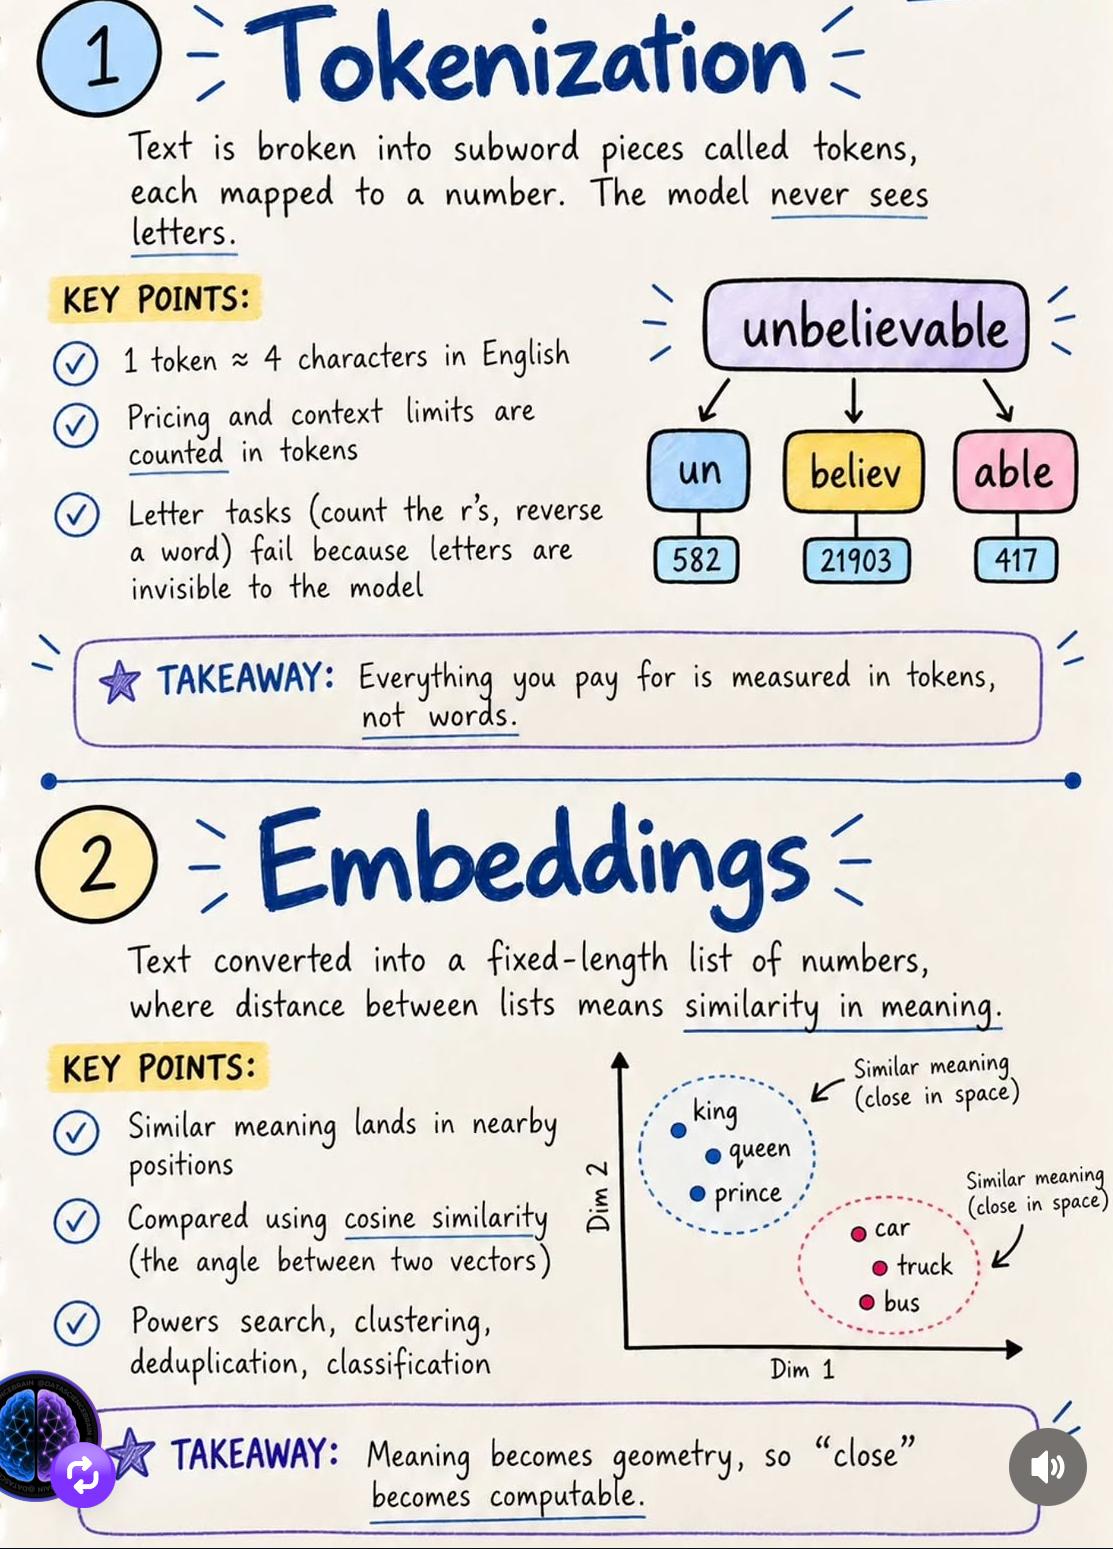 1
Tokenization
Text is broken into subword pieces called tokens,
each mapped to a number. The model never sees
letters.
KEY POINTS:
1 token ≈ 4 characters in English
Pricing and context limits are
counted in tokens
Letter tasks (count the r's, reverse
a word) fail because letters are
invisible to the model
unbelievable
un believ able
582 21903 417
TAKEAWAY: Everything you pay for is measured in tokens,
not words.
2
Embeddings
Text converted into a fixed-length list of numbers,
where distance between lists means similarity in meaning.
KEY POINTS:
Similar meaning lands in nearby
positions
Compared using cosine similarity
(the angle between two vectors)
Powers search, clustering,
deduplication, classification
Similar meaning
(close in space)
king
queen
prince
Similar meaning
(close in space)
car
truck
bus
Dim 2
Dim 1
TAKEAWAY: Meaning becomes geometry, so “close”
becomes computable.